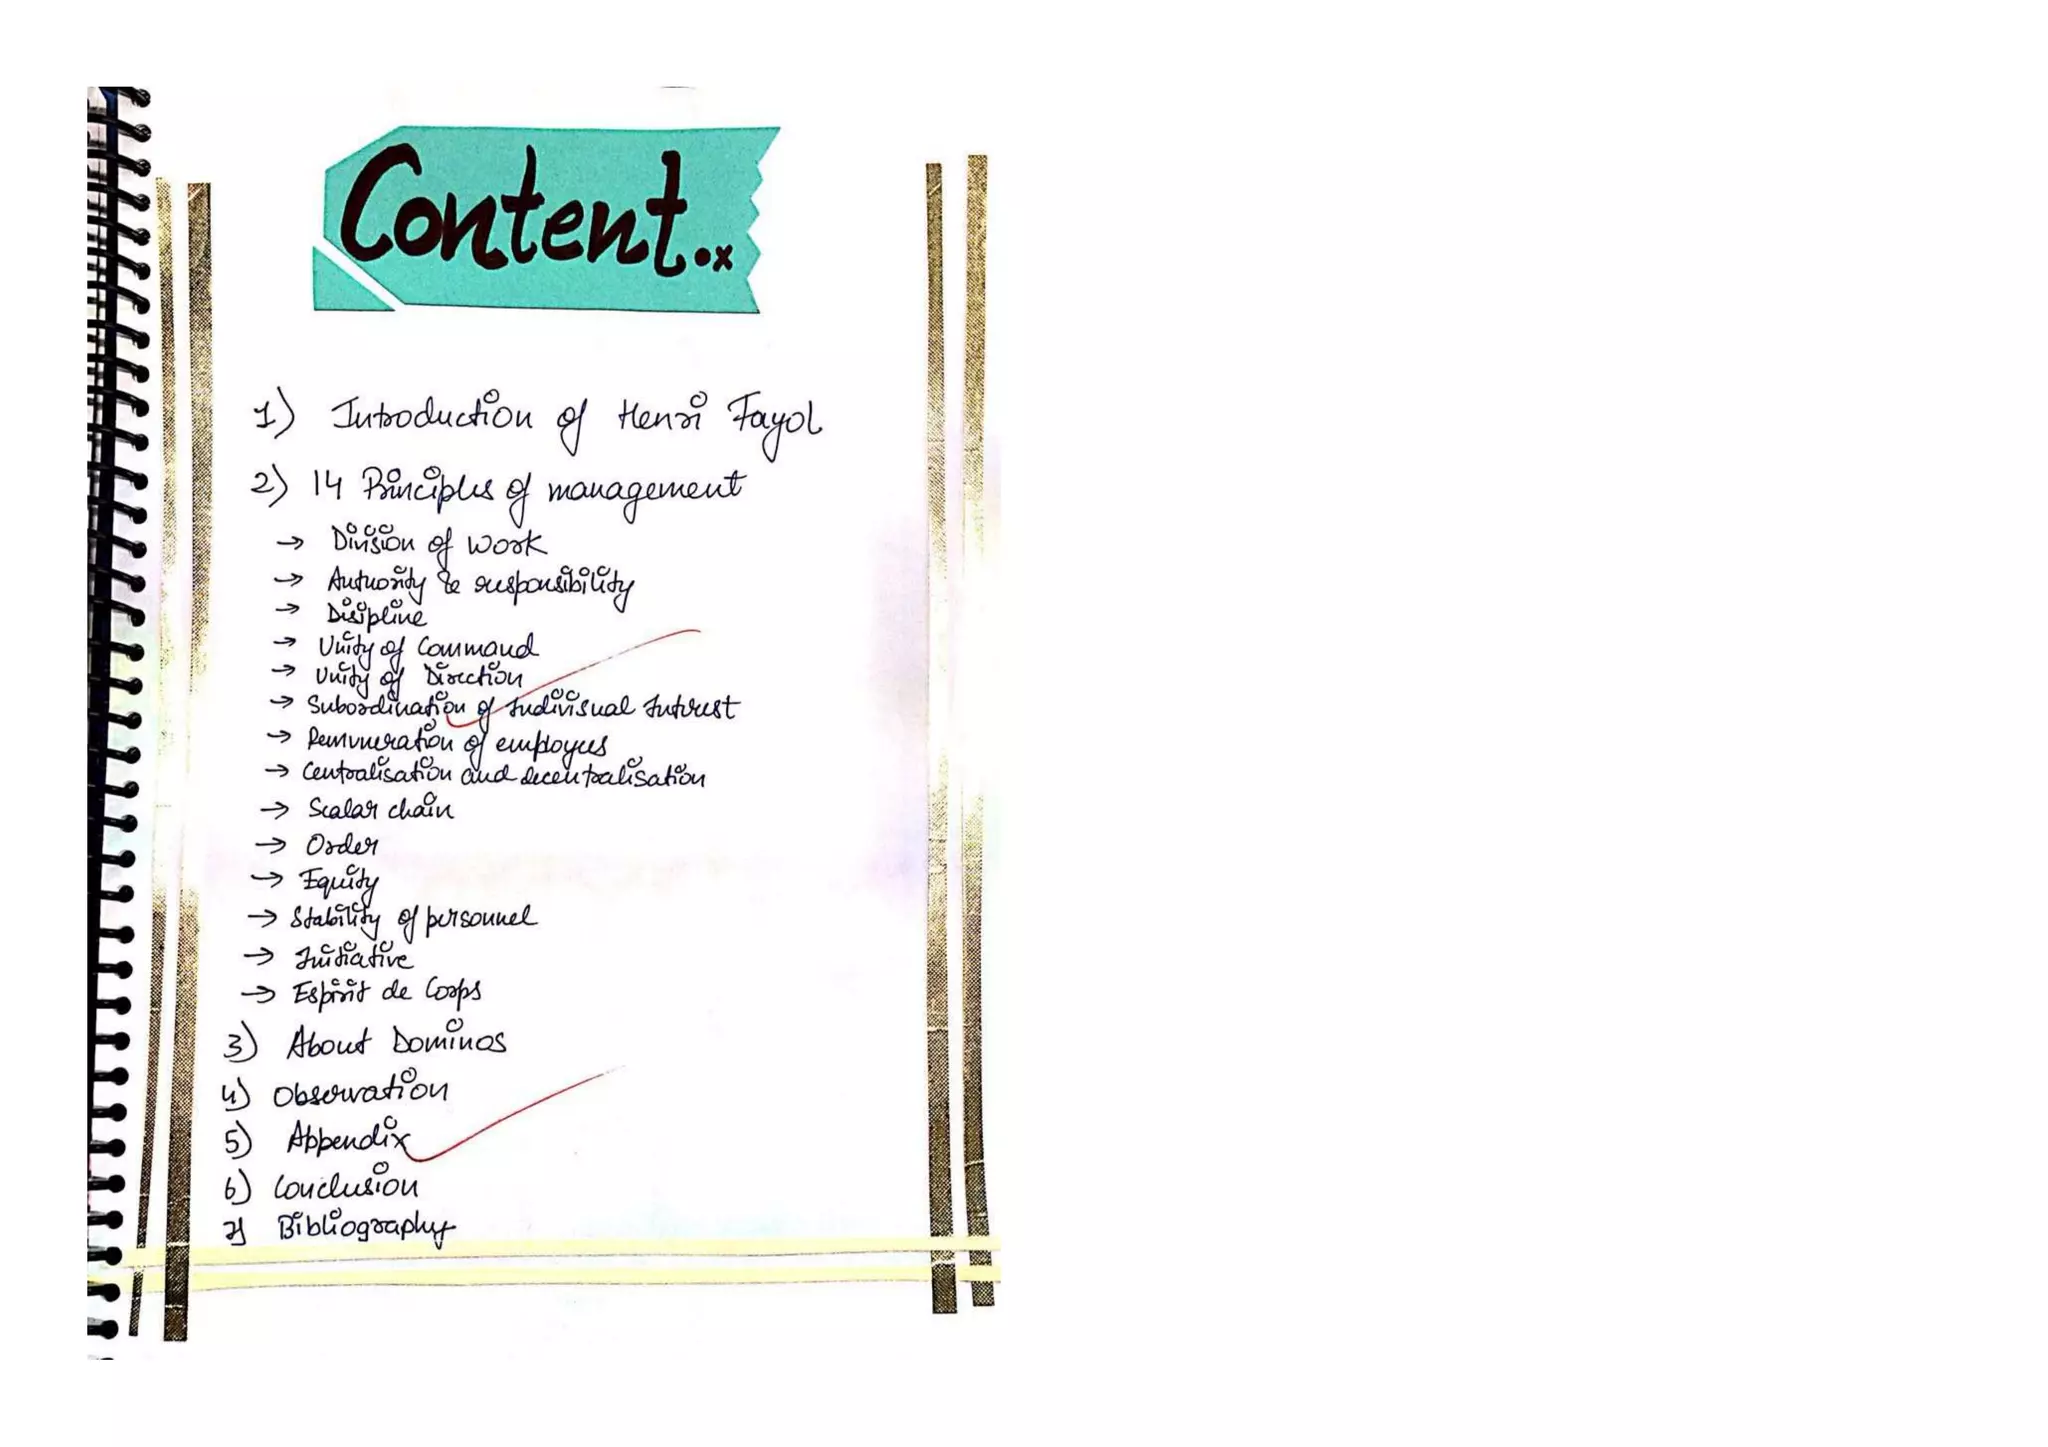 Content..x
1) Introduction of Henri Fayol
2) 14 Principles of management
→ Division of Work
→ Authority & responsibility
→ Disipline
→ Unity of Command
→ Unity of Direction
→ Subordination of Indivisual Interest
→ Remuneration of employees
→ Centralisation and decentralisation
→ Scalar chain
→ Order
→ Equity
→ Stability of personnel
→ Initiative
→ Espirit de Corps
3) About Dominos
4) Observation
5) Appendix
6) Conclusion
7) Bibliography